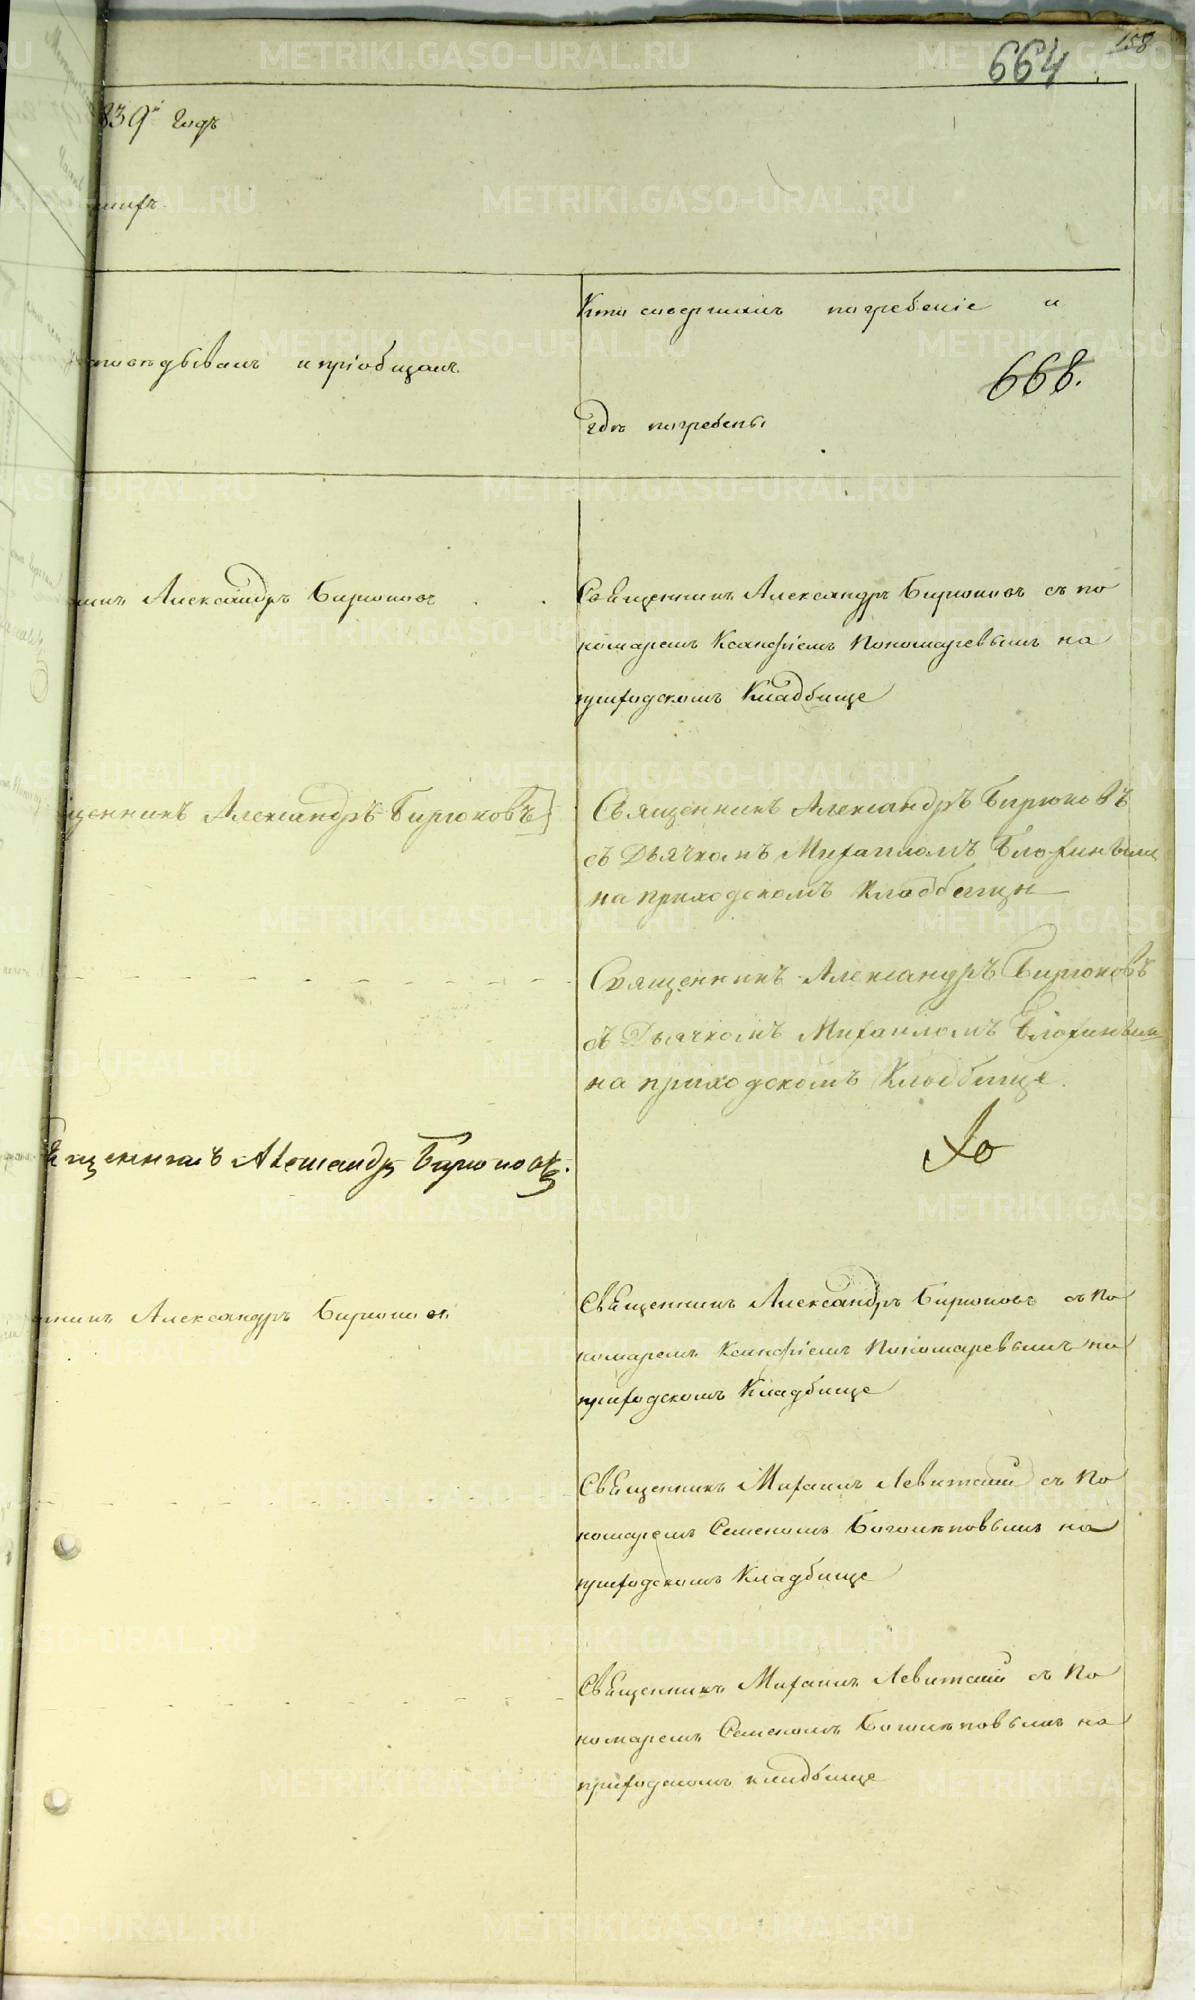 158
664
839й годъ
шихъ.
исповѣдывалъ и пріобщалъ.
Кто совершалъ погребеніе и
668.
гдѣ погребены
Александръ Бирюковъ
Священникъ Александръ Бирюковъ съ по
номаремъ Ксанфіемъ Пономаревымъ на
приходскомъ Кладбище
щенникъ Александръ Бирюковъ
Священникъ Александръ Бирюковъ
съ Дьячкомъ Михаиломъ
на приходскомъ Кладбищѣ
Священникъ Александръ Бирюковъ
съ Дьячкомъ Михаиломъ
на приходскомъ Кладбище.
щенникъ Александръ Бирюковъ.
Александръ Бирюковъ
Священникъ Александръ Бирюковъ съ По
номаремъ Ксанфіемъ Пономаревымъ на
приходскомъ Кладбище
Священникъ Михаилъ Левитскій съ По
номаремъ Семеномъ на
приходскомъ Кладбище
Священникъ Михаилъ Левитскій съ По
номаремъ Семеномъ на
приходскомъ кладбище
METRIKI.GASO-URAL.RU